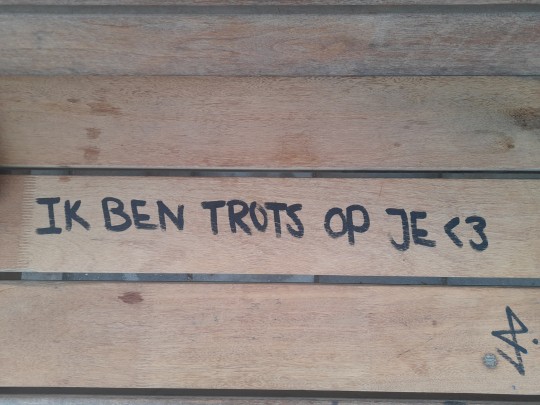 IK BEN TROTS OP JE <3